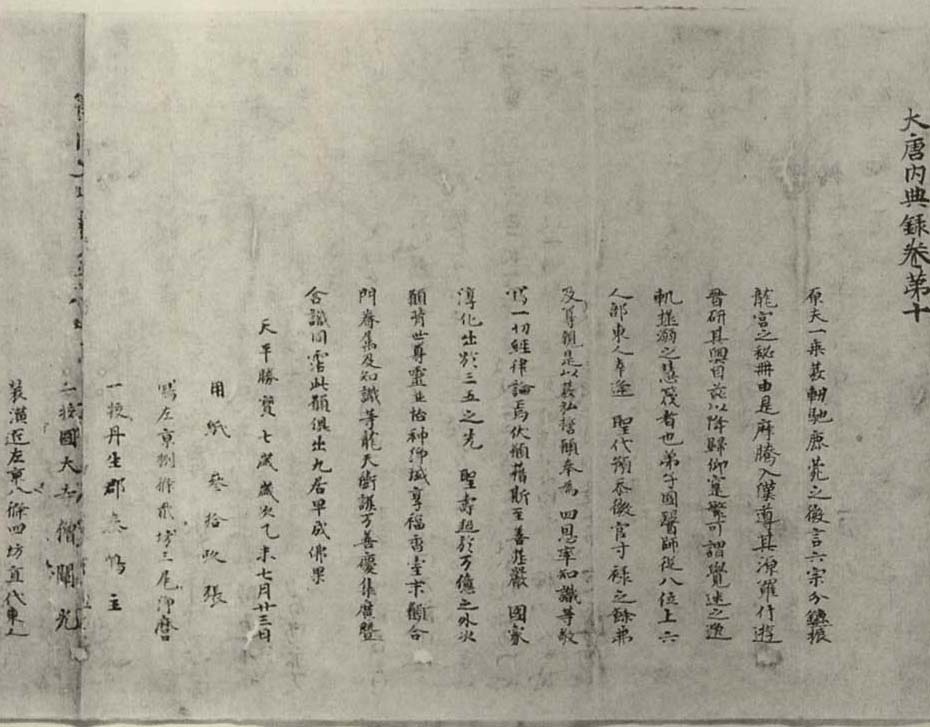 大唐内典録卷第十
原夫一乗並軔馳鹿菀之微言六宗分鑣振
龍宮之秘冊由是麻騰入漢導其源羅什遊
晉研其奥自茲以降歸仰寔繁可謂覺迷之逸
軌拯溺之慧筏者也弟子國醫師従八位上六
人部東人幸逢 聖代預忝微官寸禄之餘弟
及尊親是以弘誓願奉為 四恩率知識等敬
寫一切経律論焉伏願藉斯至善荘嚴 國家
淳化出於三五之先 聖壽超於万億之外次
願背世尊靈並怡神浄域享福香臺末願合
門眷属及知識等龍天衛護万善慶集廣曁
含識同霑此願俱出九居早成佛果
天平勝寶七歳歳次乙未七月廿三日
用紙參拾玖張
寫左京捌條貳坊三尾浄麿
一校丹生郡秦嶋主
二校國大寺僧闡光
装潢匠左京八條四坊直代東人